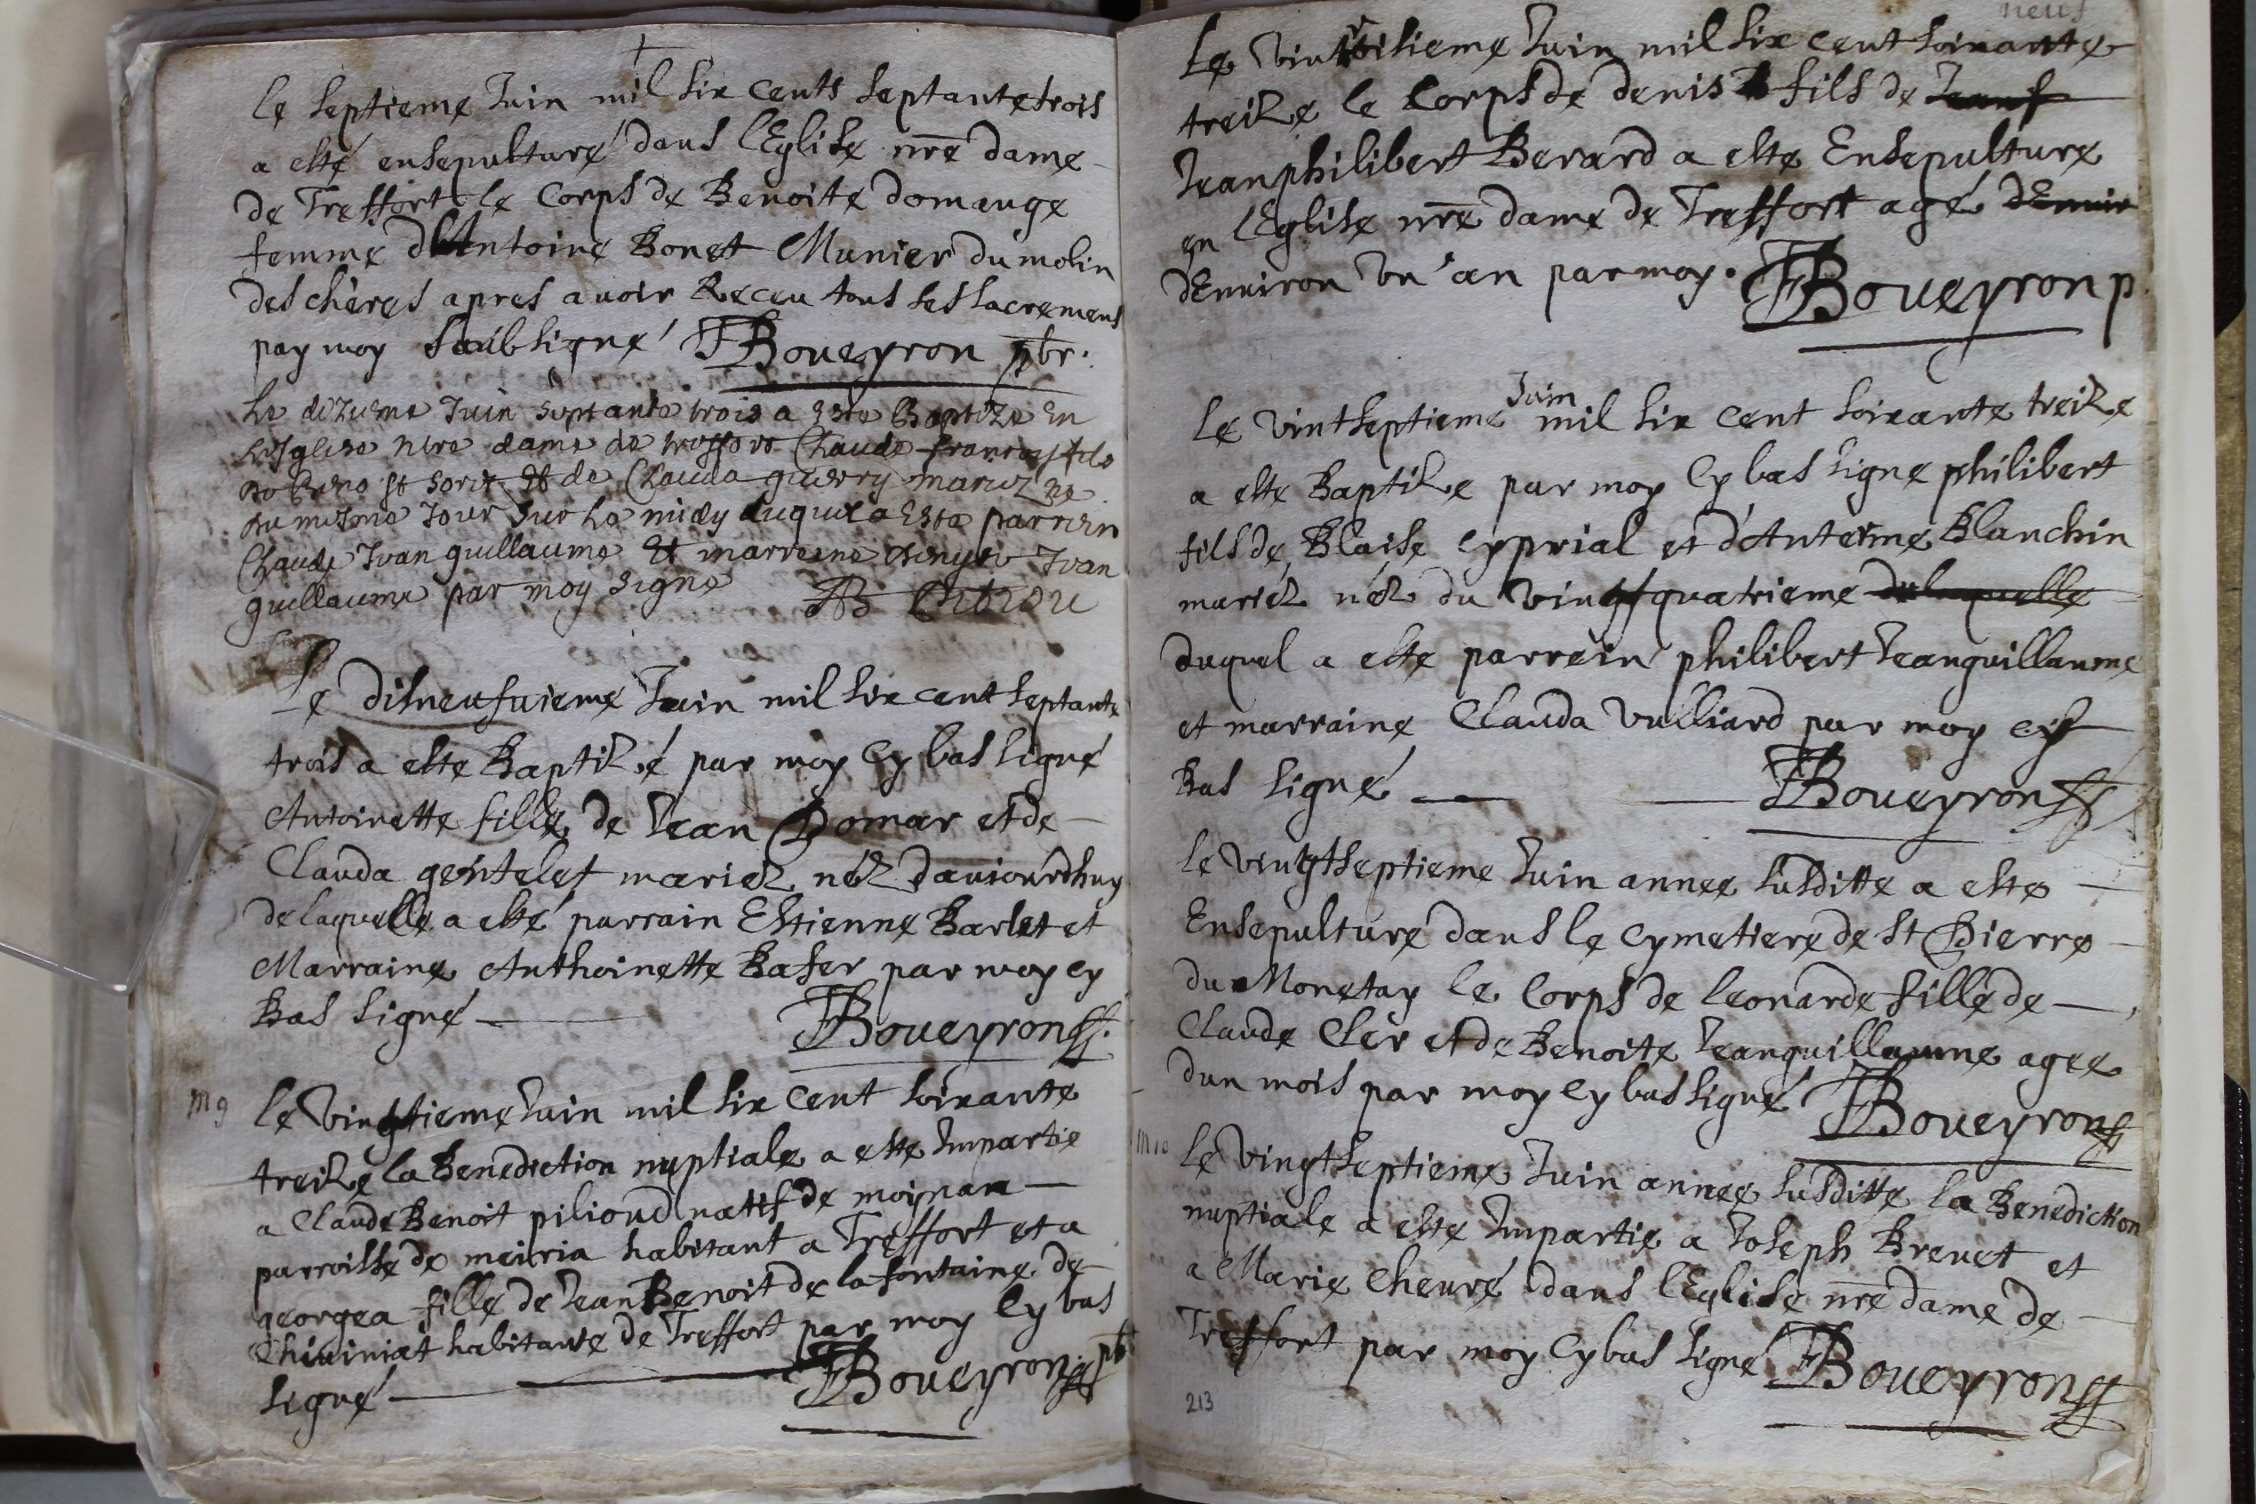 le septieme Juin mil six cents septantetrois
a esté ensepulturé dans l'Eglise nre dame
de Treffort le Corps de Benoite domange
femme d'Antoine Bonet Munier du molin
des chéres apres avoir Receu tous ses sacremens
par moy soubsigné TBoueyron pbr.
Le dizieme Juin septante trois a este Baptize en
l'esglise nre dame de treffort Claude francois fils
de et de Clauda guerry mariez ne
du mesme Jour sur le midy duquel a este parrein
Claude Jean guillaume et marreine Jean
guillaume par moy signe
Le disneufuieme Juin mil six cent septante
trois a este Baptizé par moy Cy bas signé
Antoinette fille de Jean Domar et de
Clauda gentelet mariez néz d'auiourdhuy
de laquelle a esté parrain Estienne Barlet et
Marraine Anthoinette Baser par moy cy
Bas signé TBoueyron
M 9
le Vingtieme Juin mil six cent soixante
treize la Benediction nuptiale a este Impartie
a Claude Benoit pilioud natif de moinan
parroisse de meiria habitant a Treffort et a
georgea fille de Jean Benoit de la fontaine de
habitante de Treffort par moy Cy bas
signé TBoueyron pb
neuf
Le Vint troisieme Juin mil six cent soixante
treize le Corps de denis fils de Jean
Jean philibert Berard a este Ensepulture
en l'Eglise nre dame de Treffort agé dEnuir
dEnuiron vn an par moy. TBoueyron p.
Le Vintseptieme Juin mil six cent soixante treize
a este Baptize par moy Cy bas signe philibert
fils de Blaise Cyprial et d'Anteime Blanchin
mariéz néz du vingtquatrieme de laquelle
duquel a este parrein philibert Jeanguillaume
et marraine Clauda Vulliard par moy cy
Bas signé TBoueyron
le Vingtseptieme Juin annee susditte a este
Ensepulturé dans le Cymetiere de St Pierre
du Monetay le Corps de leonarde fille de
Claude Cler et de Benoite Jeanguillaume agee
dun mois par moy Cy bas signé TBoueyron
M 10
le Vingtseptieme Juin annee susditte la Benediction
nuptiale a este Impartie a Joseph Breuet et
a Marie Cheuré dans l'Eglise nre dame de
Treffort par moy Cy bas signé TBoueyron
213